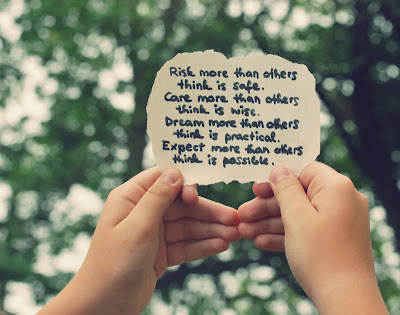 Risk more than others
think is safe.
Care more than others
think is wise.
Dream more than others
think is practical.
Expect more than others
think is possible.